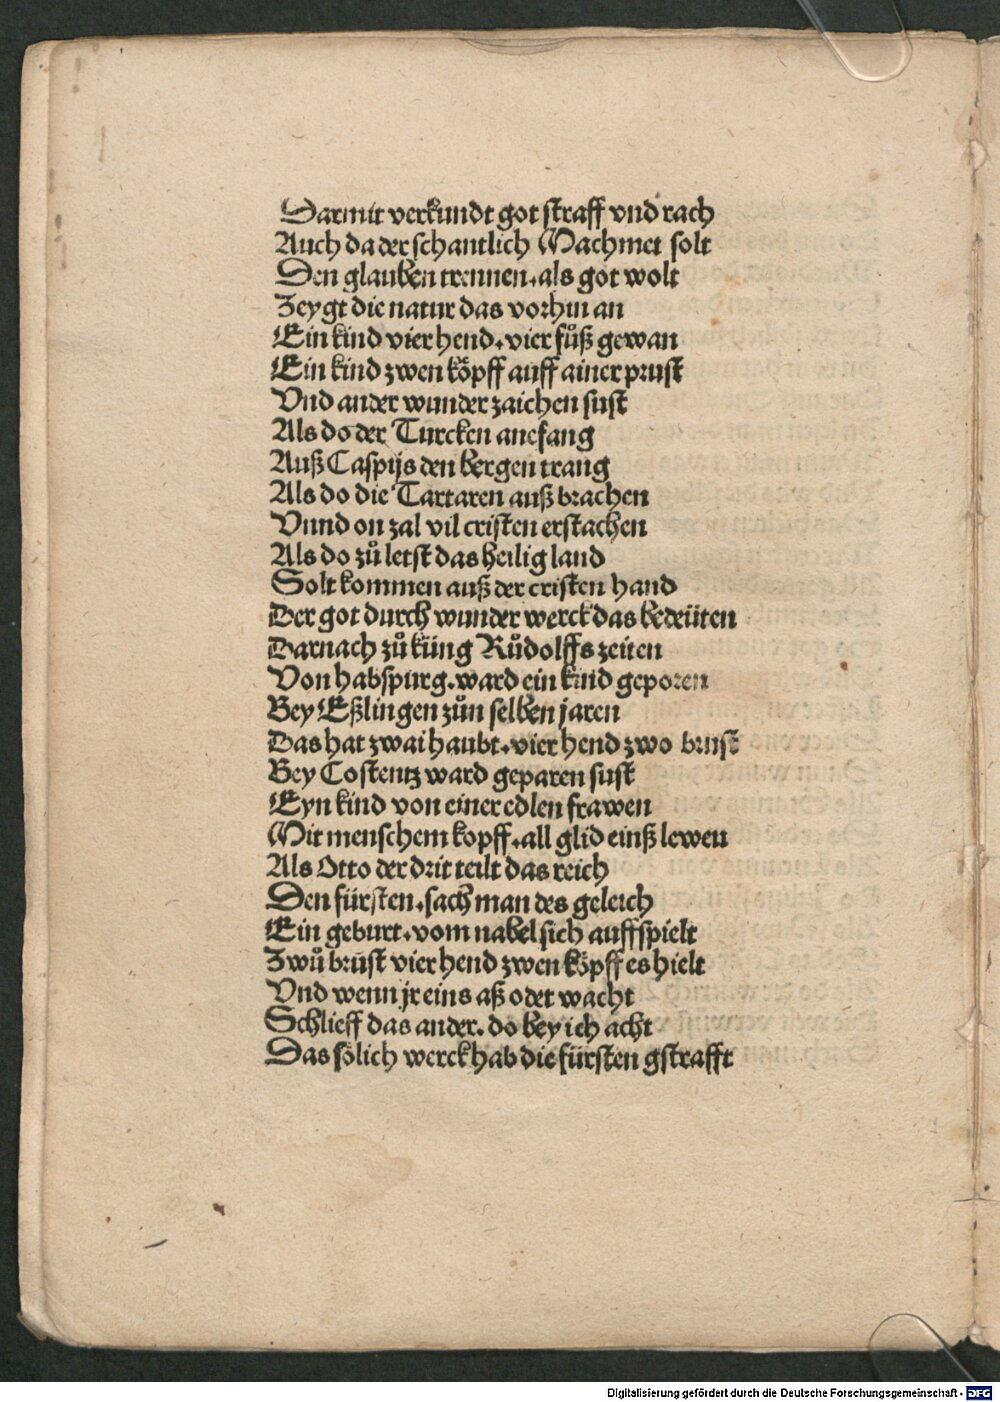 Darmit verkundt got straff vnd rach
Auch da der schantlich Machmet solt
Den glauben trennen. als got wolt
Zeygt die natur das vorhin an
Ein kind vier hend. vier fuͦß gewan
Ein kind zwen koͤpff auff ainer prust
Vnd ander wunder zaichen sust
Als do der Turcken anefang
Auß Caspijs den bergen trang
Als do die Tartaren auß brachen
Vnnd on zal vil cristen erstachen
Als do zuͦ letst das heilig land
Solt kommen auß der cristen hand
Der got durch wunder werck das bedeüten
Darnach zuͦ küng Ruͦdolffs zeiten
Von habspurg. ward ein kind geporen
Bey Eßlingen zuͦn selben jaren
Das hat zwai haubt. vier hend zwo brust
Bey Costentz ward geparen sust
Eyn kind von einer edlen frawen
Mit menschem kopff. all glid einß lewen
Als Otto der drit teilt das reich
Den fürsten. sach man des geleich
Ein geburt. vom nabel sich auffspielt
Zwuͦ brust vier hend zwen koͤpff es hielt
Vnd wenn jr eins aß odet wacht
Schlieff das ander. do bey ich acht
Das soͤlich werck hab die fürsten gstrafft
Digitalisierung gefördert durch die Deutsche Forschungsgemeinschaft - DFG